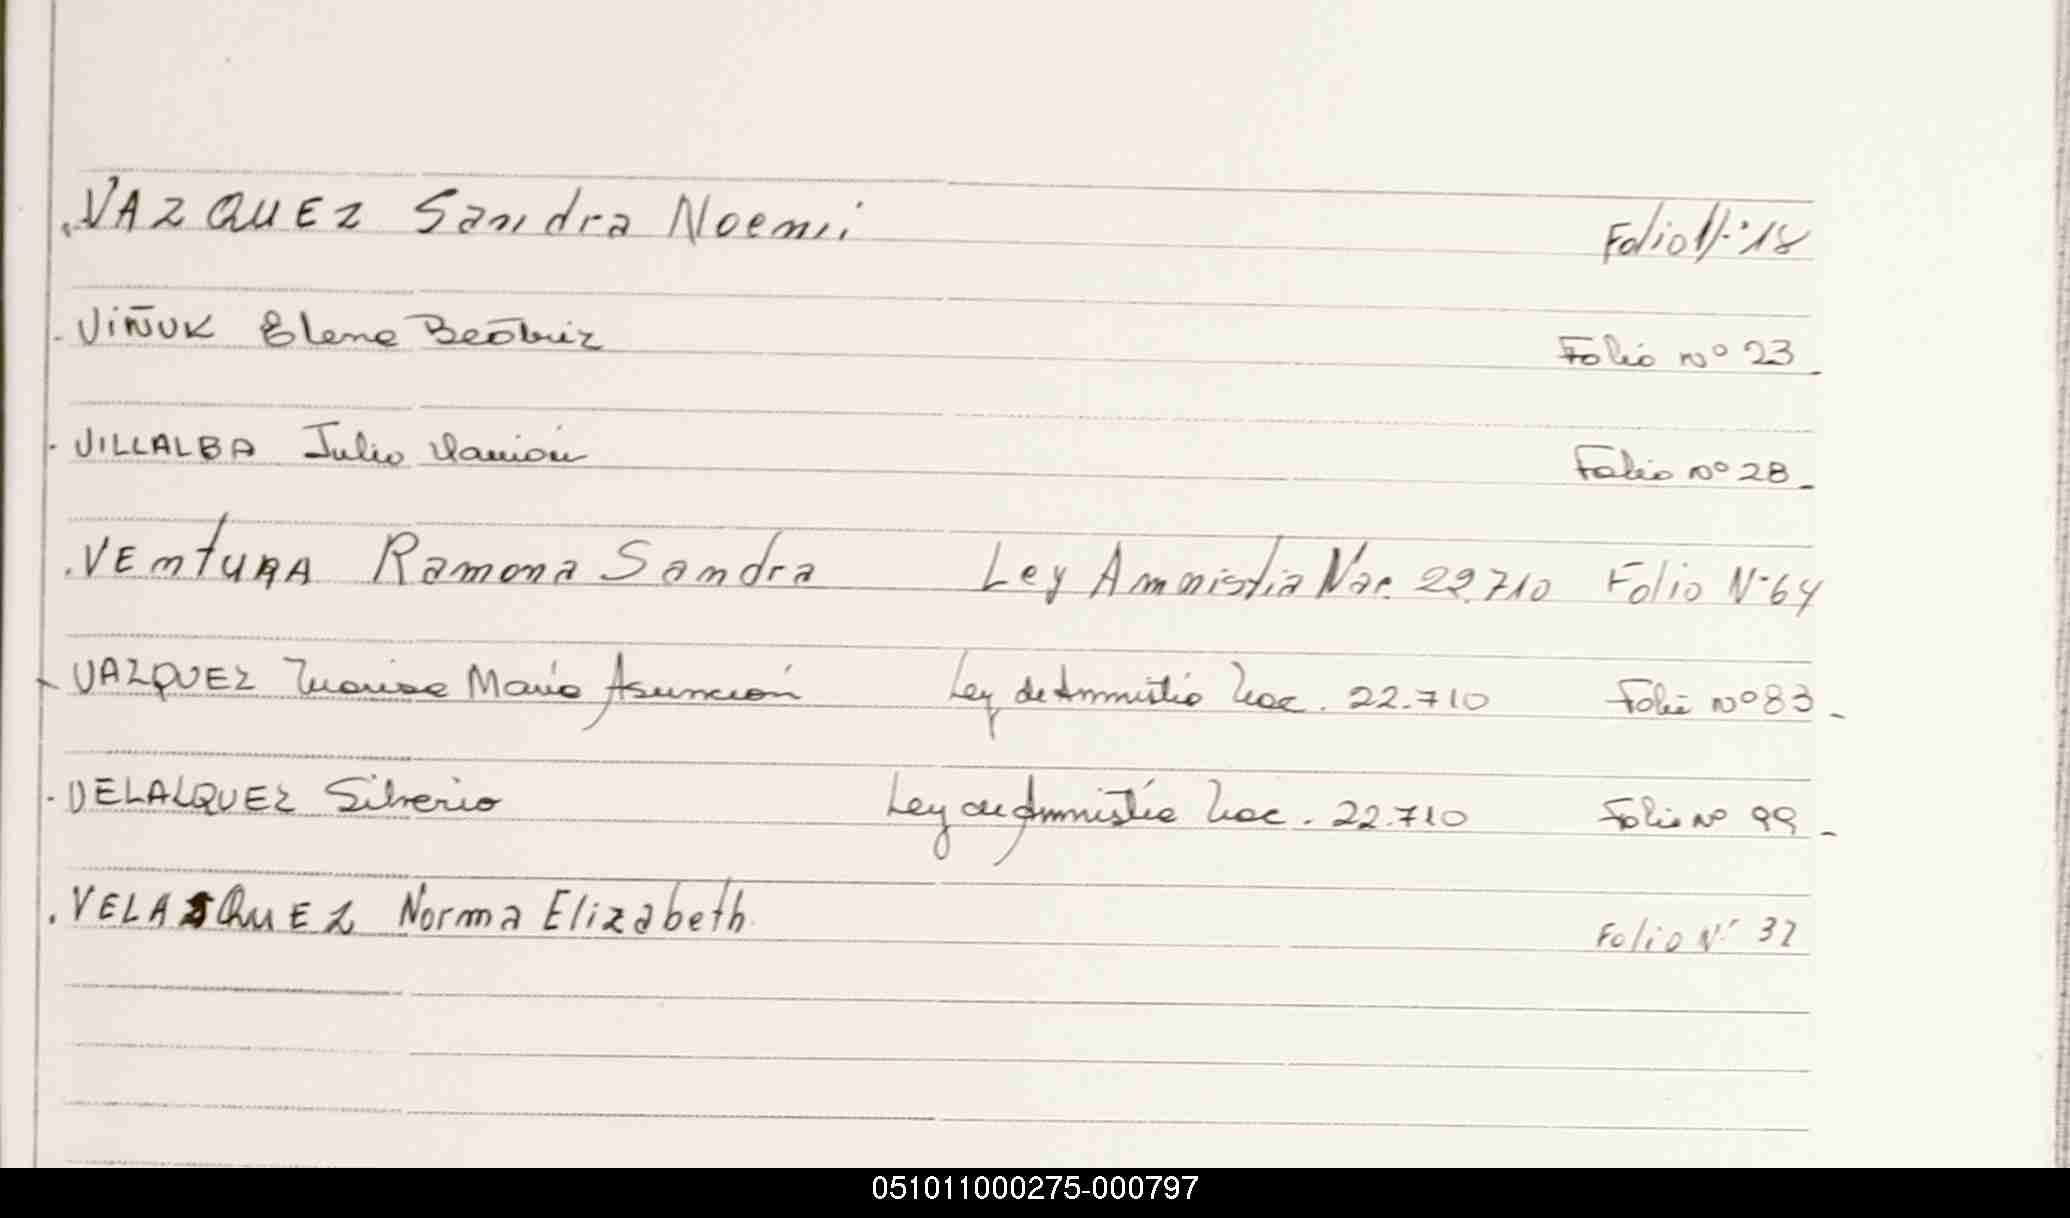 VAZQUEZ Sandra Noemi Folio N° 18
VIÑUK Elena Beatriz Folio n° 23
VILLALBA Julio Ramón Folio n° 28
VENTURA Ramona Sandra Ley Amnistia Nac. 22.710 Folio N° 64
VAZQUEZ María Asunción Ley de Amnistia Nac. 22.710 Folio n° 83
VELALQUEZ Silverio Ley de Amnistía Nac. 22.710 Folio n° 99
VELASQUEZ Norma Elizabeth Folio N° 32
051011000275-000797